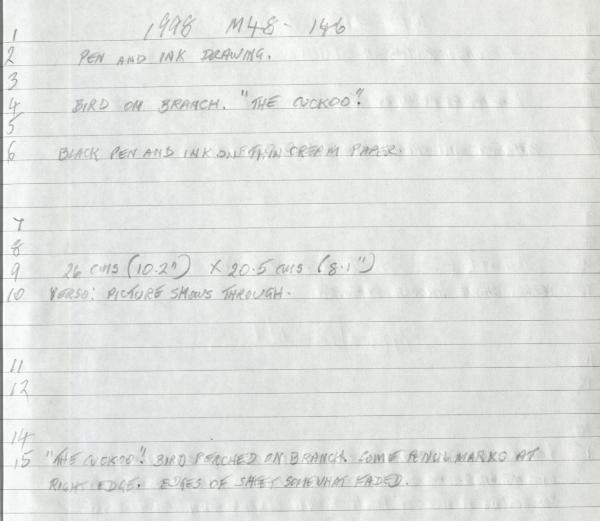 1 1998 M48- 146
2 PEN AND INK DRAWING.
3
4 BIRD ON BRANCH. "THE CUCKOO".
5
6 BLACK PEN AND INK ON THIN CREAM PAPER.
7
8
9 26 cms (10.2") X 20.5 cms (8.1")
10 VERSO: PICTURE SHOWS THROUGH.
11
12
14
15 "THE CUCKOO". BIRD PERCHED ON BRANCH. SOME PENCIL MARKS AT
RIGHT EDGE. EDGES OF SHEET SOMEWHAT FADED.